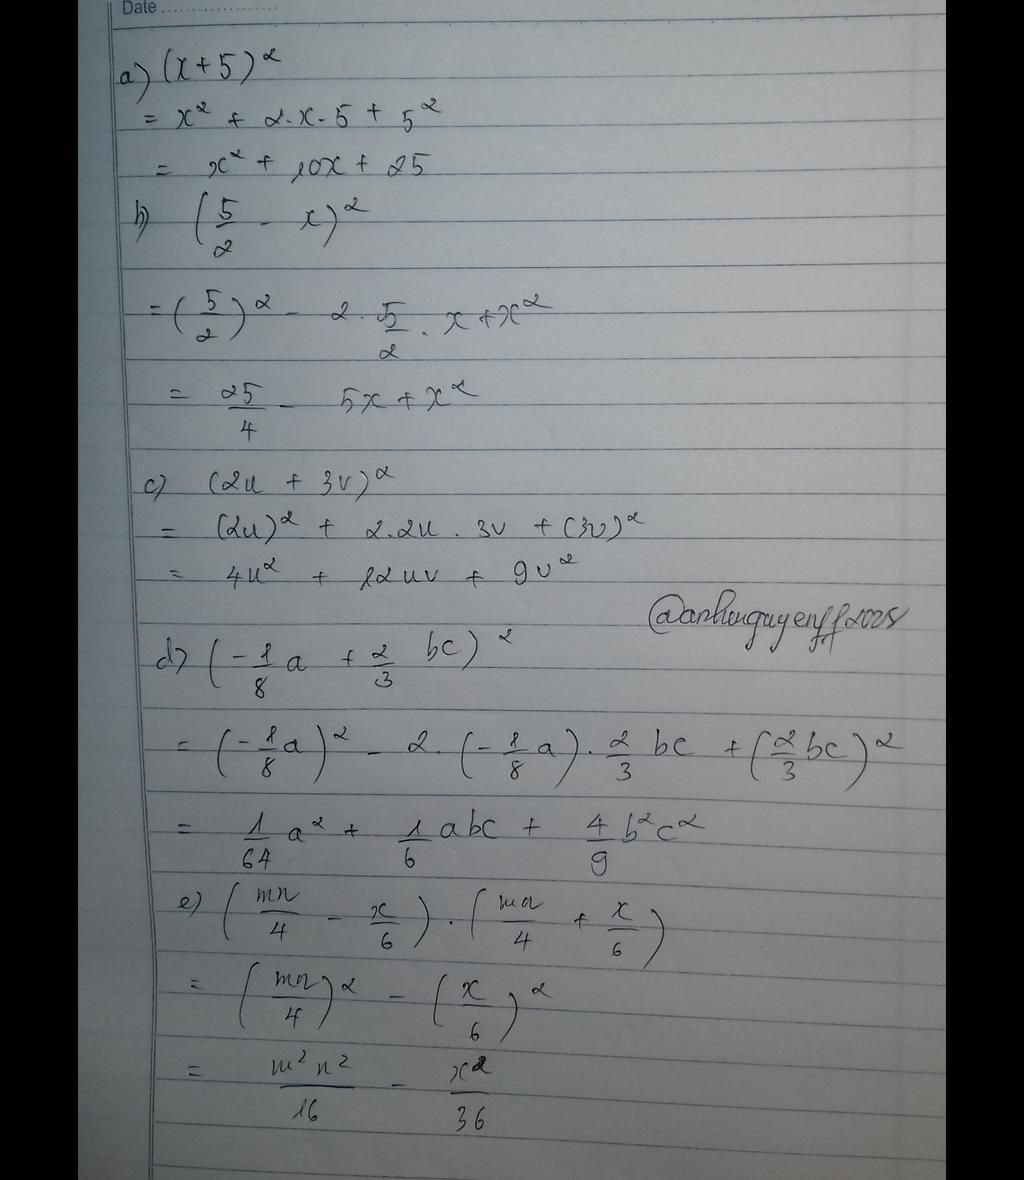 Date ....................
a) (x+5)²
= x² + 2.x.5 + 5²
= x² + 10x + 25
b) (5/2 - x)²
= (5/2)² - 2.5/2.x + x²
= 25/4 - 5x + x²
c) (2u + 3v)²
= (2u)² + 2.2u.3v + (3v)²
= 4u² + 12uv + 9v²
@anhnguyenff2008
d) (-1/8 a + 2/3 bc)²
= (-1/8 a)² - 2.(-1/8 a).2/3 bc + (2/3 bc)²
= 1/64 a² + 1/6 abc + 4/9 b²c²
e) (mn/4 - x/6).(mn/4 + x/6)
= (mn/4)² - (x/6)²
= m²n²/16 - x²/36